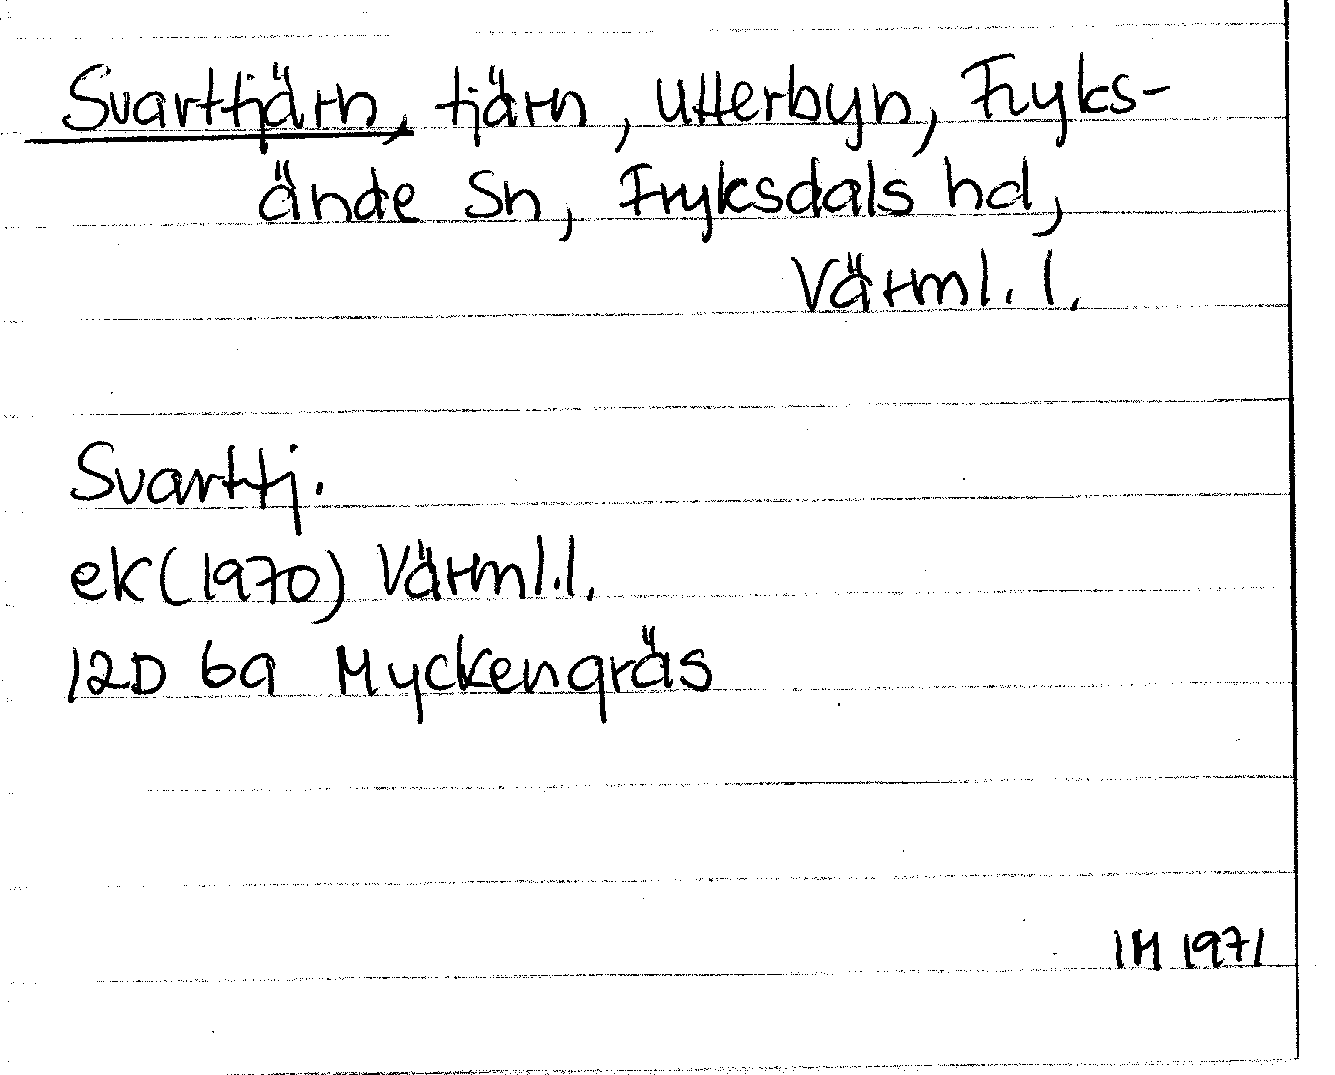 Svarttjärn, tjärn, Utterbyn, Fryks-
ände Sn, Fryksdals hd,
Värml. l.
Svarttj.
ek (1970) Värml.l.
12D 6a Myckengräs
IM 1971